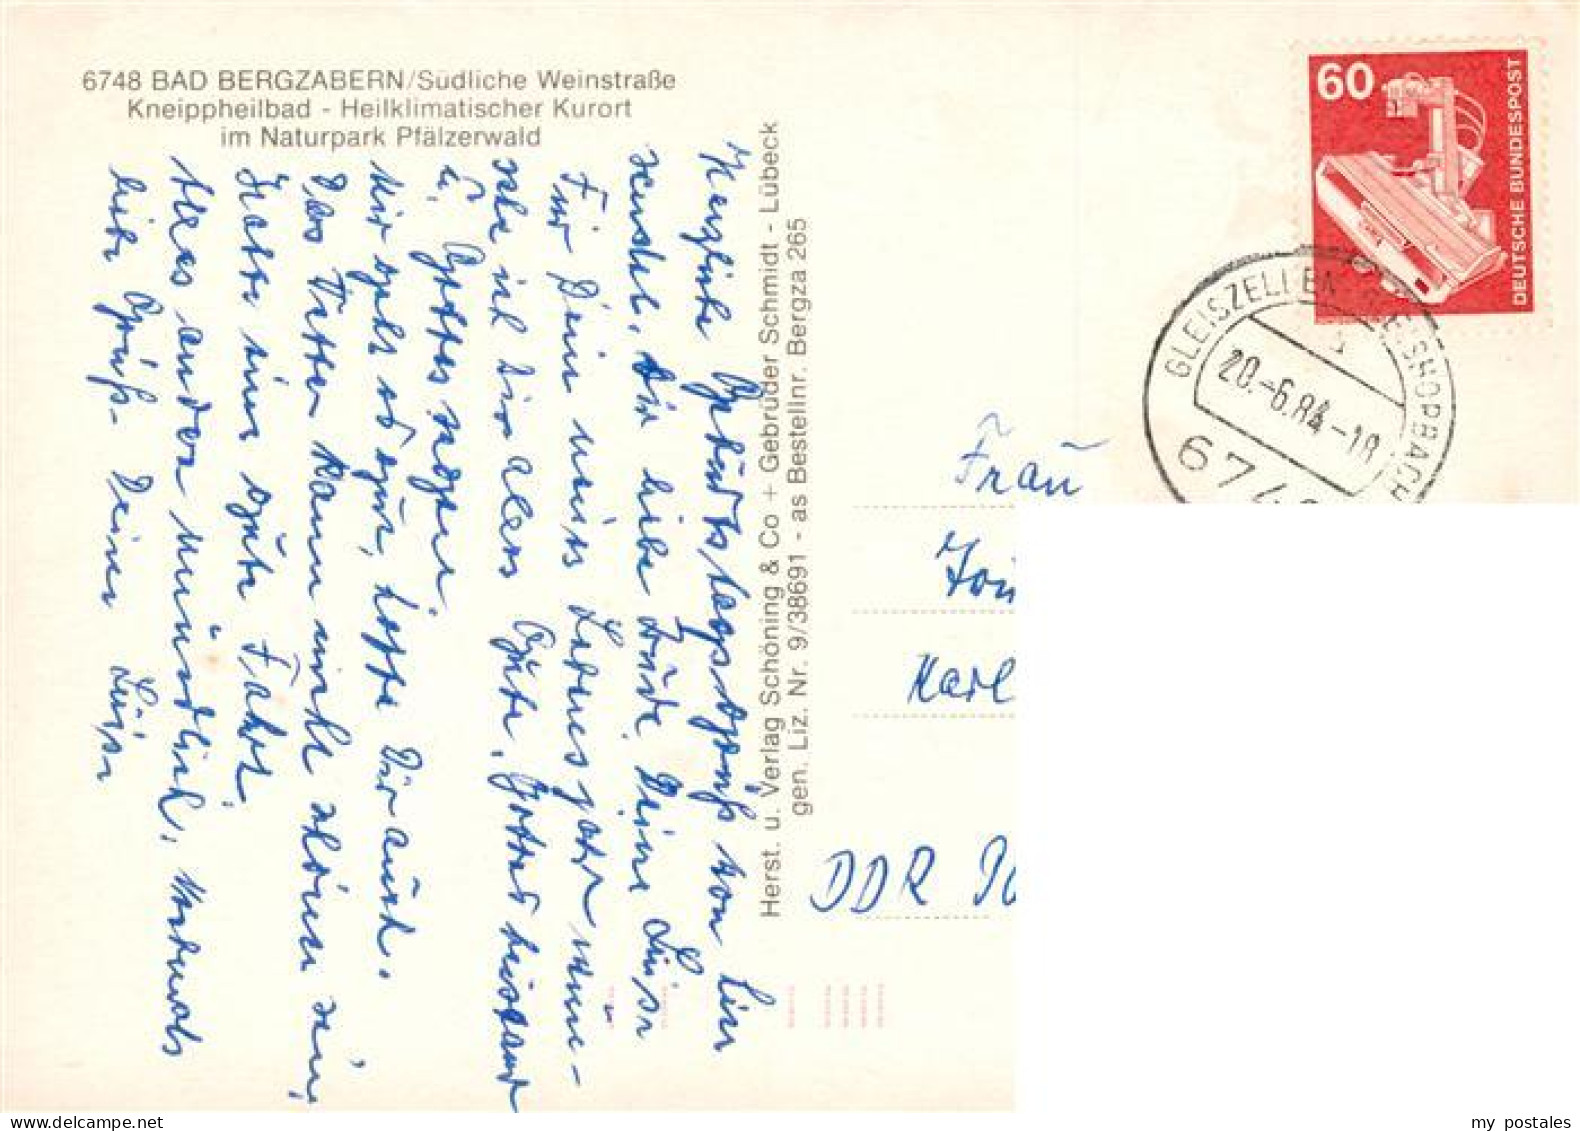 6748 BAD BERGZABERN/Südliche Weinstraße
Kneippheilbad - Heilklimatischer Kurort
im Naturpark Pfälzerwald
Herzliche Geburtstagsgrüß von hier
sendet, dir liebe Deine Luise
Für Dein neues Lebensjahr wün-
sche ich Dir alles Gute, Gottes
u. Gottes segen.
Mir geht es gut, hoffe Dir auch.
Das Wetter kann nicht schöner sein,
Hatte eine gute Fahrt.
Alles andere mündlich,
liebe Grüß. Deine Luise
Herst. u. Verlag Schöning & Co + Gebrüder Schmidt - Lübeck
gen. Liz. Nr. 9/38691 - as Bestellnr. Bergza 265
60
DEUTSCHE BUNDESPOST
GLEISZELLEN-GLEISHORBACH
20.-6.84-18
674
Frau
Karl
DDR
my postales